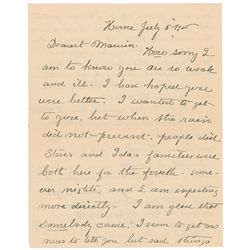 Home July 5"
Dearest
How sorry I
am to know you are so weak
and ill - I had hoped you
were better. I wanted to get
to you, but when the rain
did not prevent - people did
and Ida's families were
both here for the fourth - some
over night, and I am expecting
more directly - I am glad that
somebody came, I seem to get no
news to tell you but sad things